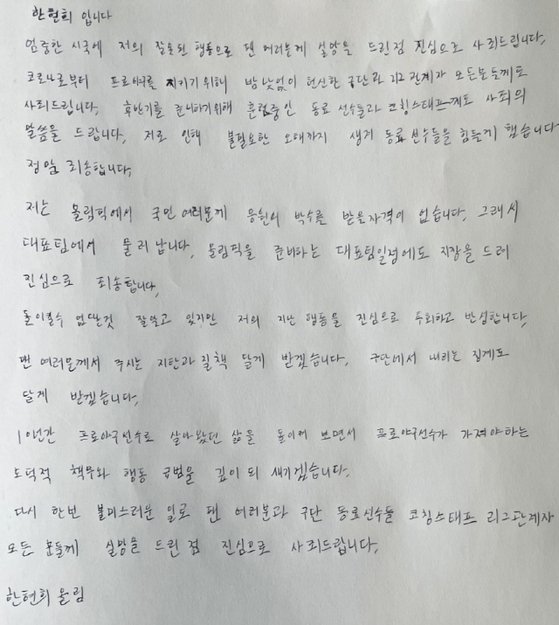 한현희 입니다
엄중한 시국에 저의 잘못된 행동으로 팬 여러분께 실망을 드린점 진심으로 사죄드립니다.
코로나로부터 프로야구를 지키기 위해 밤낮없이 헌신한 구단과 리그 관계자 모든분들께도
사죄드립니다. 후반기를 준비하기위해 훈련중인 동료 선수들과 코칭스태프께도 사죄의
말씀을 드립니다. 저로 인해 불필요한 오해까지 생겨 동료선수들을 힘들게 했습니다
정말 죄송합니다.
저는 올림픽에서 국민 여러분께 응원의 박수를 받을자격이 없습니다. 그래서
대표팀에서 물러납니다. 올림픽을 준비하는 대표팀일정에도 지장을 드려
진심으로 죄송합니다.
돌이킬수 없다는것 잘알고 있지만 저의 지난 행동을 진심으로 후회하고 반성합니다.
팬 여러분께서 주시는 지탄과 질책 달게 받겠습니다. 구단에서 내리는 징계도
달게 받겠습니다.
10년간 프로야구선수로 살아왔던 삶을 돌이켜 보면서 프로야구선수가 가져야하는
도덕적 책무와 행동 규범을 깊이 되 새기겠습니다.
다시 한번 불미스러운 일로 팬 여러분과 구단 동료선수들 코칭스태프 리그관계자
모든 분들께 실망을 드린 점 진심으로 사죄드립니다.
한현희 올림